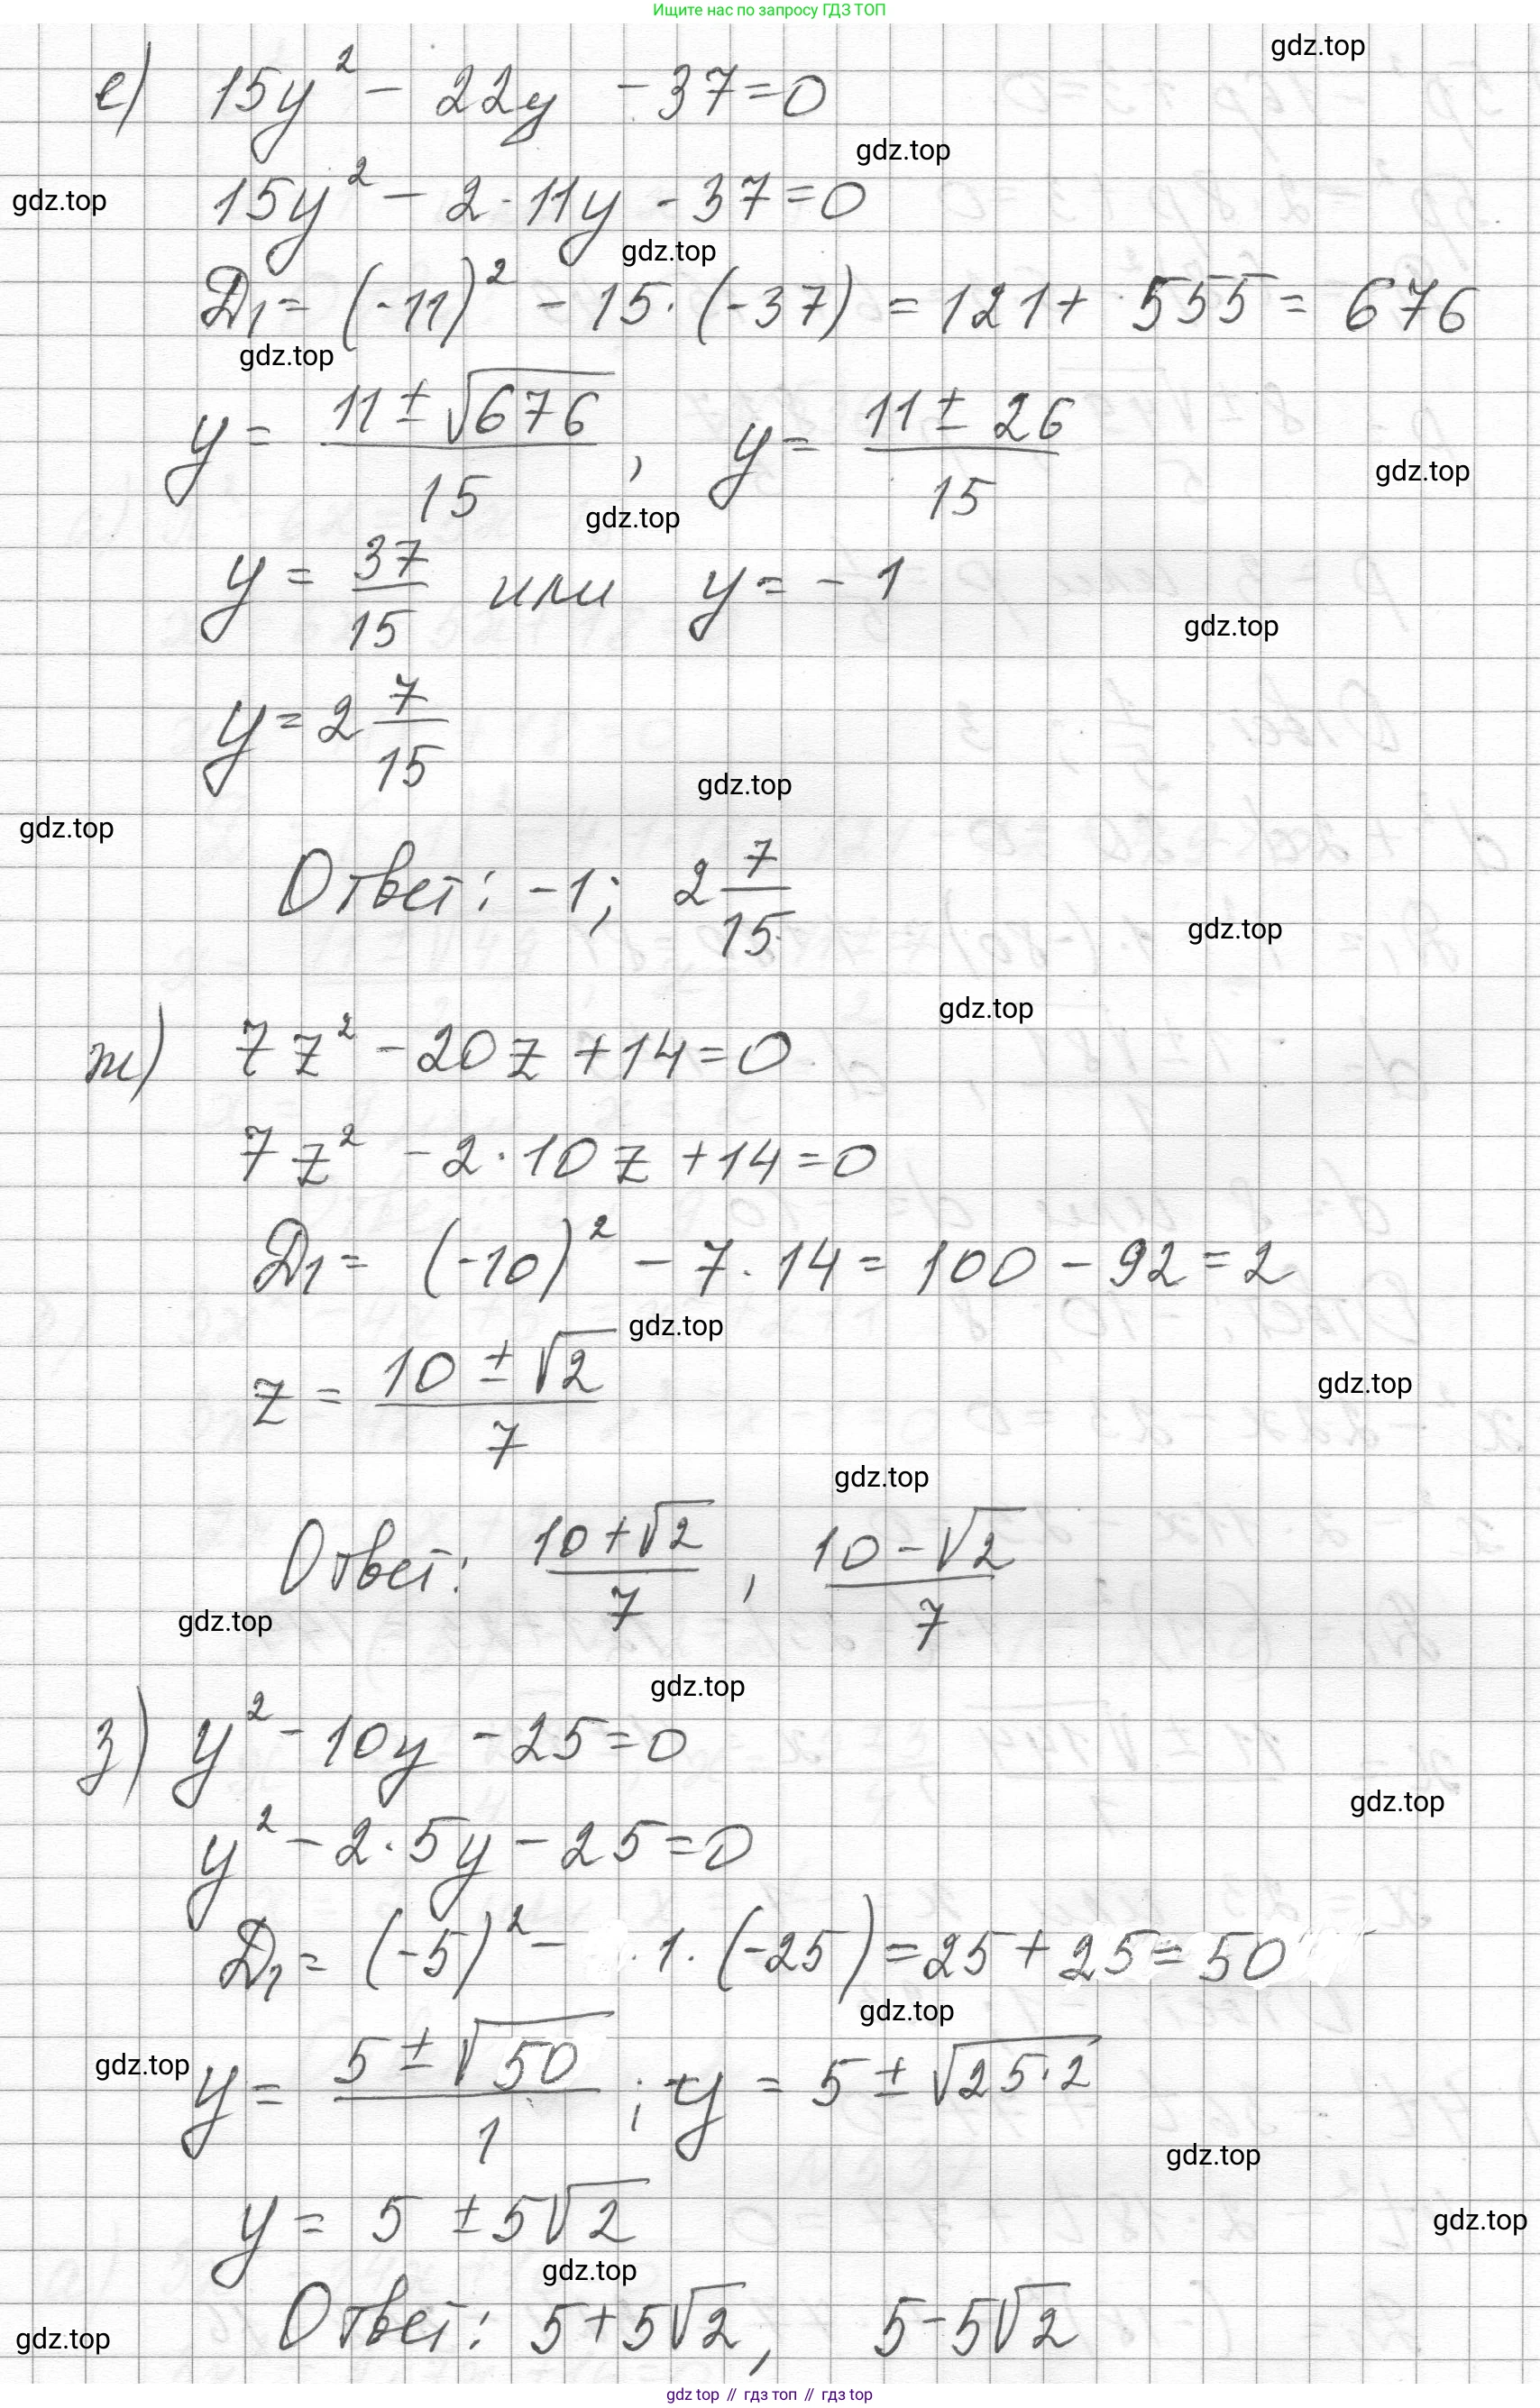 Ищите нас по запросу ГДЗ ТОП
gdz.top
е) 15y² - 22y - 37 = 0
gdz.top
gdz.top
15y² - 2·11y - 37 = 0
gdz.top
Д₁ = (-11)² - 15·(-37) = 121 + 555 = 676
gdz.top
y = (11 ± √676)/15 , y = (11 ± 26)/15
gdz.top
gdz.top
y = 37/15 или y = -1
gdz.top
y = 2 7/15
gdz.top
gdz.top
Ответ: -1; 2 7/15
gdz.top
gdz.top
ж) 7z² - 20z + 14 = 0
7z² - 2·10z + 14 = 0
Д₁ = (-10)² - 7·14 = 100 - 92 = 2
gdz.top
z = (10 ± √2)/7
gdz.top
gdz.top
Ответ: (10+√2)/7 , (10-√2)/7
gdz.top
gdz.top
з) y² - 10y - 25 = 0
gdz.top
y² - 2·5y - 25 = 0
Д₁ = (-5)² - ·1·(-25) = 25 + 25 = 50
gdz.top
gdz.top
y = (5 ± √50)/1 ; y = 5 ± √25·2
gdz.top
y = 5 ± 5√2
gdz.top
gdz.top
Ответ: 5+5√2, 5-5√2
gdz.top
gdz top // гдз топ // гдз top